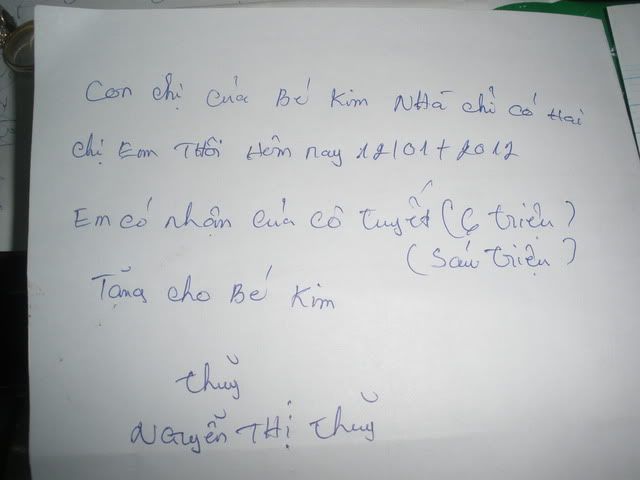 Con chị của Bé Kim Nhà chỉ có Hai
chị Em Thôi Hôm nay 12/01+2012
Em có nhận của cô Tuyết (6 triệu)
(Sáu triệu)
Tặng cho Bé Kim
Thuỹ
Nguyễn Thị Thuỹ